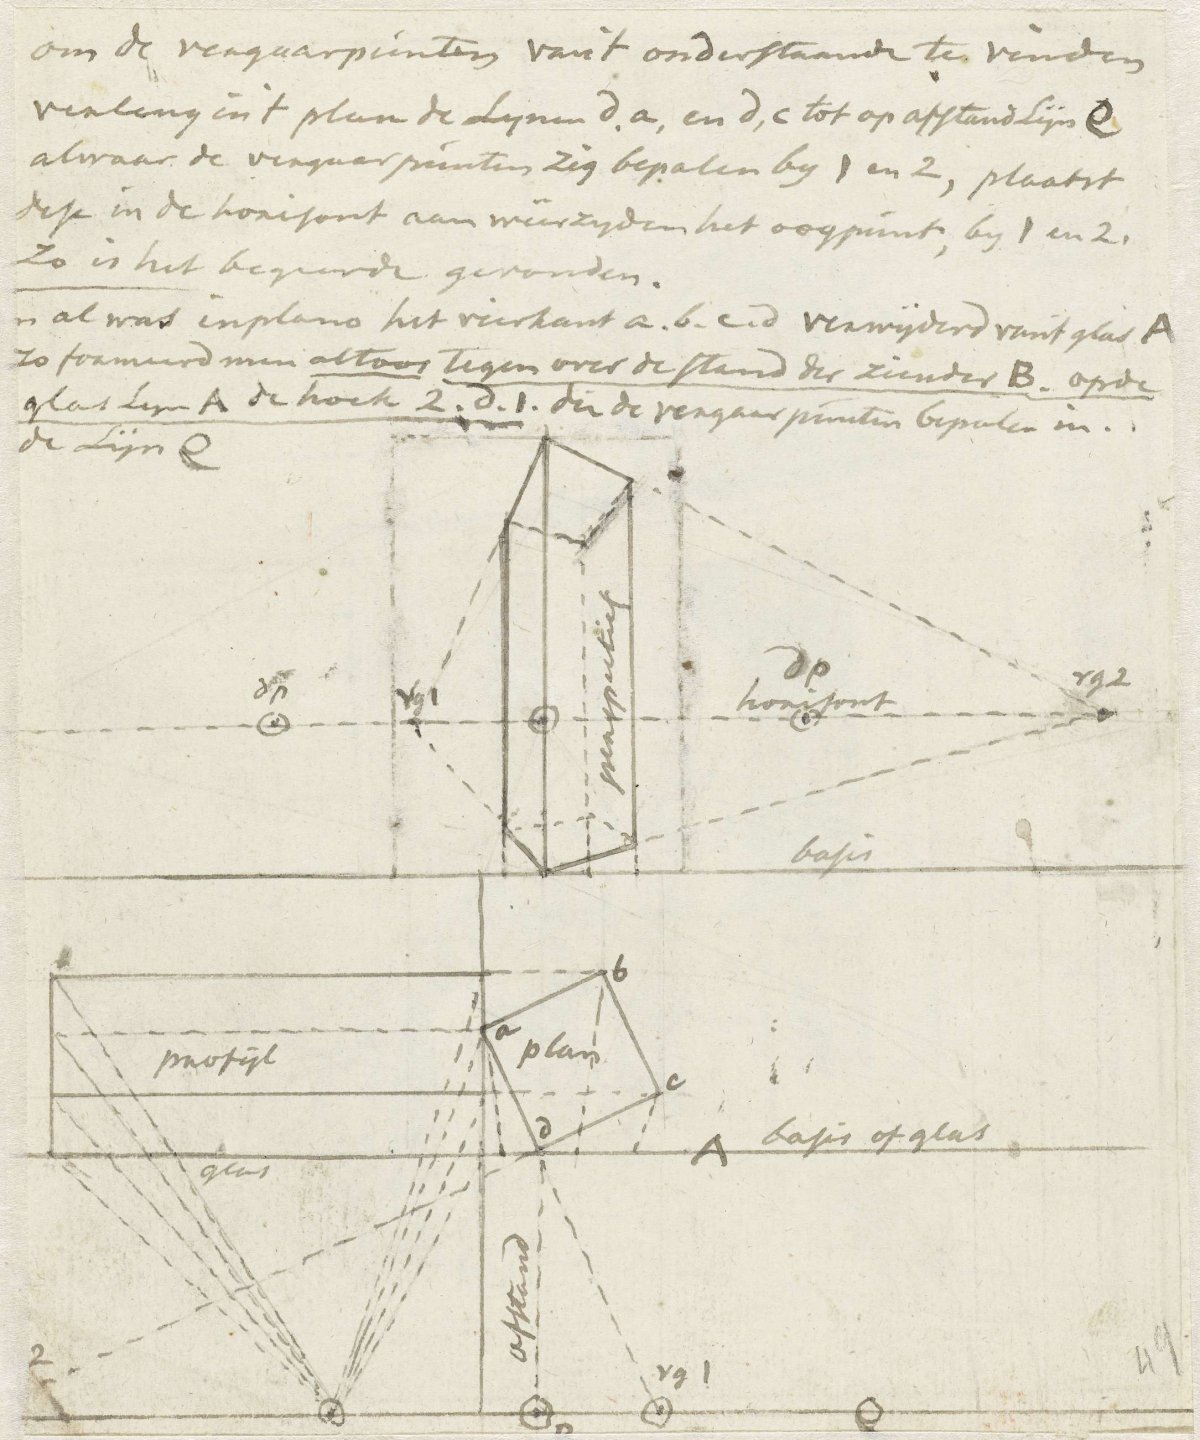 om de vergaarpünten van't onderstaande te vinden
verleng in't plan de Lynen d.a, en d,c tot op afstand Lijn C
alwaar de vergaarpünten zig bepalen by 1 en 2, plaatst
dese in de horisont aan weerzyden het oogpünt, by 1 en 2.
Zo is het begeerde gevonden.
al was inplano het vierkant a.b.c.d verwijderd van't glas A
zo formeerd men altoos tegen over de stand der ziender B. op de
glas Lyn A de hoek 2.d.1. die de vergaarpünten bepalen in
de Lijn C
dp
vg1
perspectief
dp
horisont
vg2
basis
b
a
plan
profijl
c
d
A
basis of glas
glas
afstand
2
vg 1
49